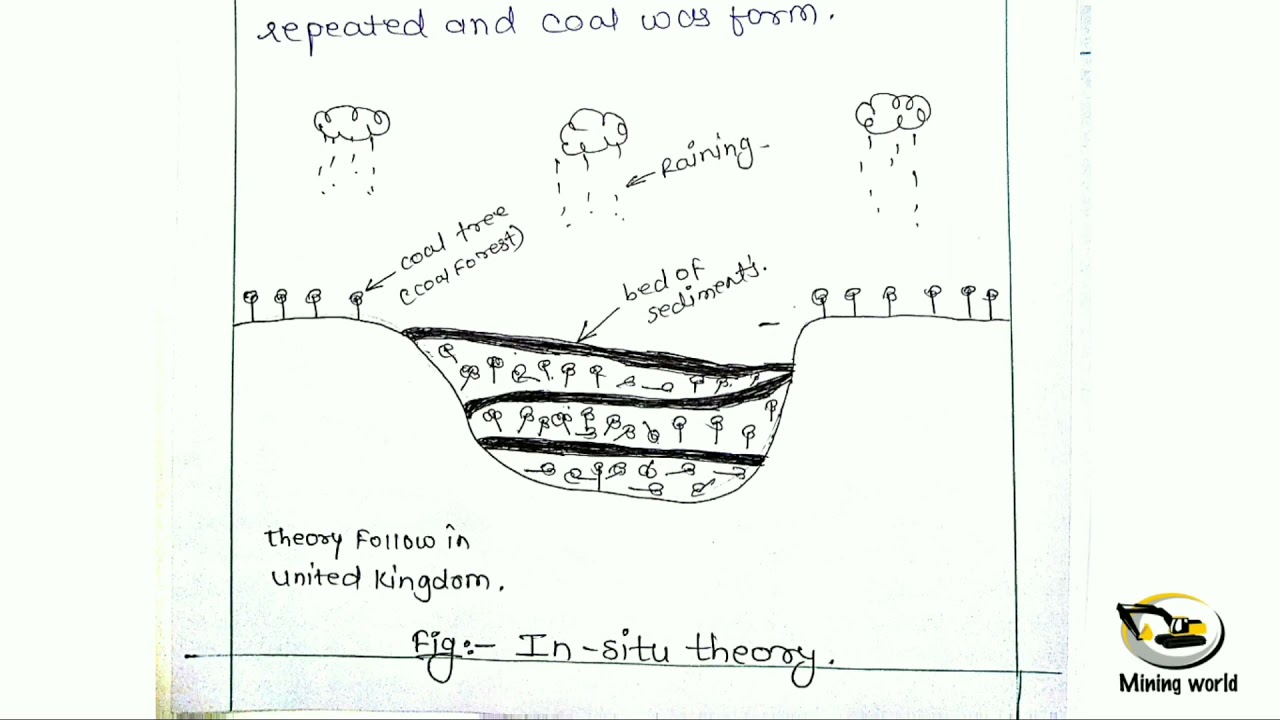 repeated and coal was form.
Raining -
coal tree
(coal Forest)
bed of
sediments.
theory Follow in
United Kingdom.
Fig:- In-situ theory.
Mining world